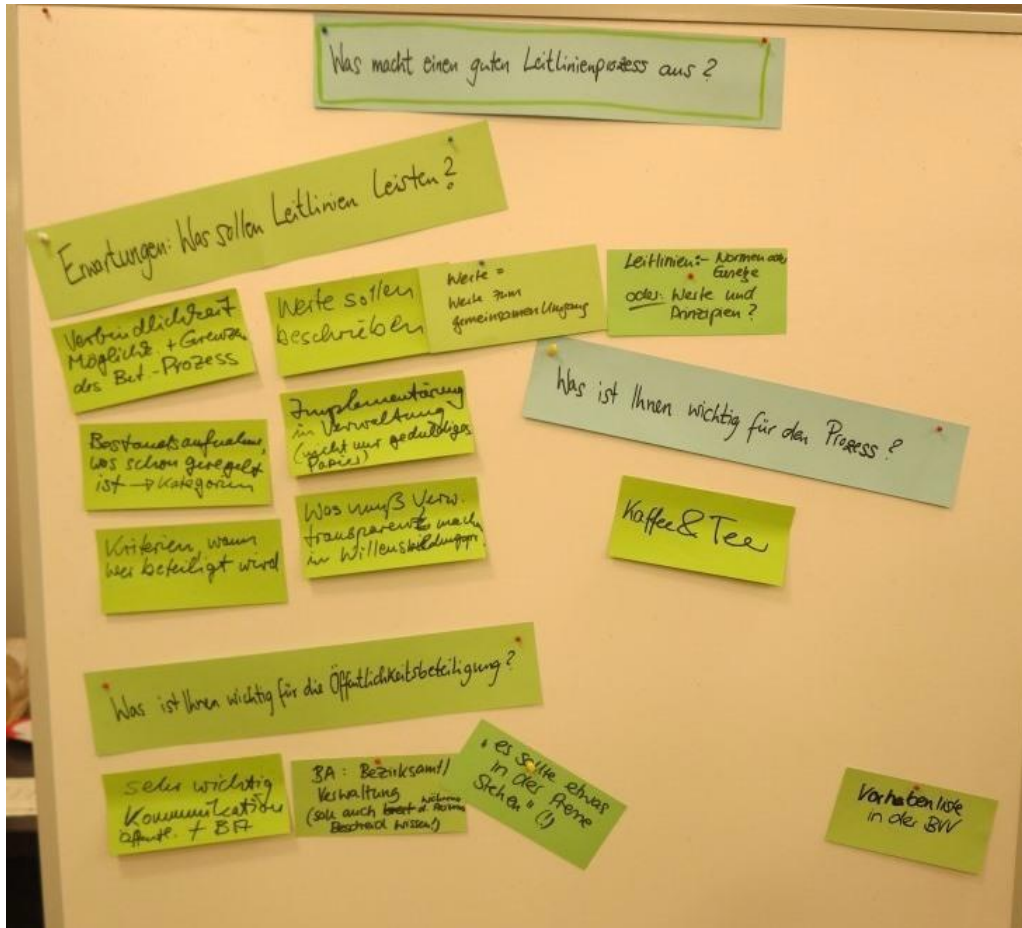 Was macht einen guten Leitlinienprozess aus?
Erwartungen: Was sollen Leitlinien Leisten?
Verbindlichkeit
Möglichk. + Grenzen
des Bet.-Prozess
Werte sollen
beschrieben
Werte =
Werte zum
gemeinsamen Umgang
Leitlinien:- Normen oder
Gesetze
oder: Werte und
Prinzipien?
Bestandsaufnahme,
was schon geregelt
ist → Kategorien
Implementierung
in Verwaltung
(nicht nur geduldiges
Papier)
Kriterien, wann
wer beteiligt wird
Was muß Verw.
transparent machen
in
Was ist Ihnen wichtig für den Prozess?
Kaffee & Tee
Was ist Ihnen wichtig für die Öffentlichkeitsbeteiligung?
sehr wichtig
Kommunikation
öffentl. + BA
BA: Bezirksamt/
Verwaltung
(soll auch während d.
Bescheid wissen!)
"es sollte etwas
in der
Stehen" (!)
Vorhabenliste
in der BVV